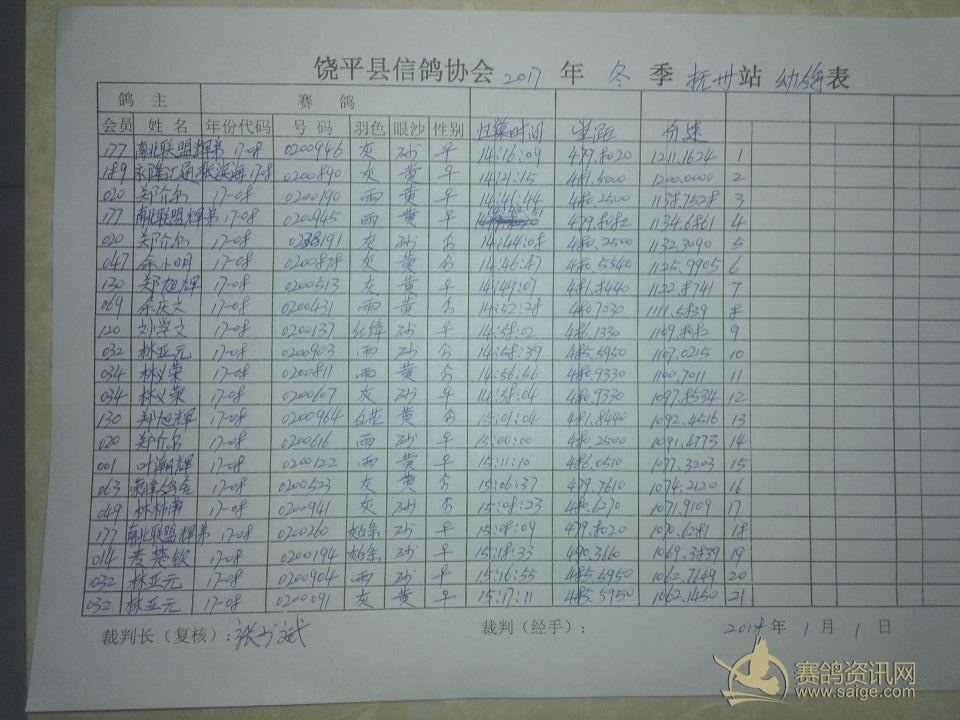 饶平县信鸽协会 2017 年 冬 季 抚州 站 幼鸽 表
鸽 主 赛 鸽
会员 姓 名 年份代码 号 码 羽色 眼沙 性别 归巢时间 空距 分速
177 南北联盟辉弟 17-08 0200946 灰 砂 14:16:09 479.8020 1211.1624 1
189 17-08 0200890 灰 黄 14:21:15 481.5000 1200.0000 2
020 郑介尔 17-08 0200190 雨 黄 14:41:44 480.2500 1138.7528 3
177 南北联盟辉弟 17-08 0200945 雨 黄 479.8082 1134.6861 4
020 郑介尔 17-08 灰 砂 14:44:08 480.2500 1132.3090 5
047 余小明 17-08 0200878 灰 黄 14:46:47 480.5540 1125.9905 6
130 郑旭辉 17-08 0200513 灰 黄 14:49:07 481.8440 1122.8741 7
069 余庆文 17-08 0200431 雨 黄 14:52:28 480.7230 1111.5839 8
120 刘学文 17-08 0200137 红绛 砂 14:58:02 486.1330 1109.8082 9
032 林亚元 17-08 0200903 雨 砂 14:58:39 485.5950 1107.0215 10
034 林义荣 17-08 0200811 雨 黄 14:56:56 480.9330 1100.7011 11
034 林义荣 17-08 0200607 灰 砂 14:58:04 480.9330 1097.8534 12
130 郑旭辉 17-08 0200964 黄 15:01:04 481.8440 1092.4516 13
020 郑介尔 17-08 0200616 雨 砂 15:00:00 480.2500 1091.4773 14
001 叶潮辉 17-08 0200122 雨 黄 15:11:10 486.0510 1077.3203 15
063 17-08 0200523 灰 黄 15:06:37 479.7610 1074.2120 16
049 17-08 0200941 灰 砂 15:08:23 480.6270 1071.9109 17
177 南北联盟辉弟 17-08 0200260 砂 15:08:09 479.8020 1070.6281 18
014 17-08 0200194 砂 15:18:33 490.3160 1069.3839 19
032 林亚元 17-08 0200904 雨 砂 15:16:55 485.5950 1062.7649 20
032 林亚元 17-08 0200091 灰 黄 15:17:11 485.5950 1062.1450 21
裁判长（复核）： 裁判（经手）： 2018 年 1 月 1 日
赛鸽资讯网
www.saige.com